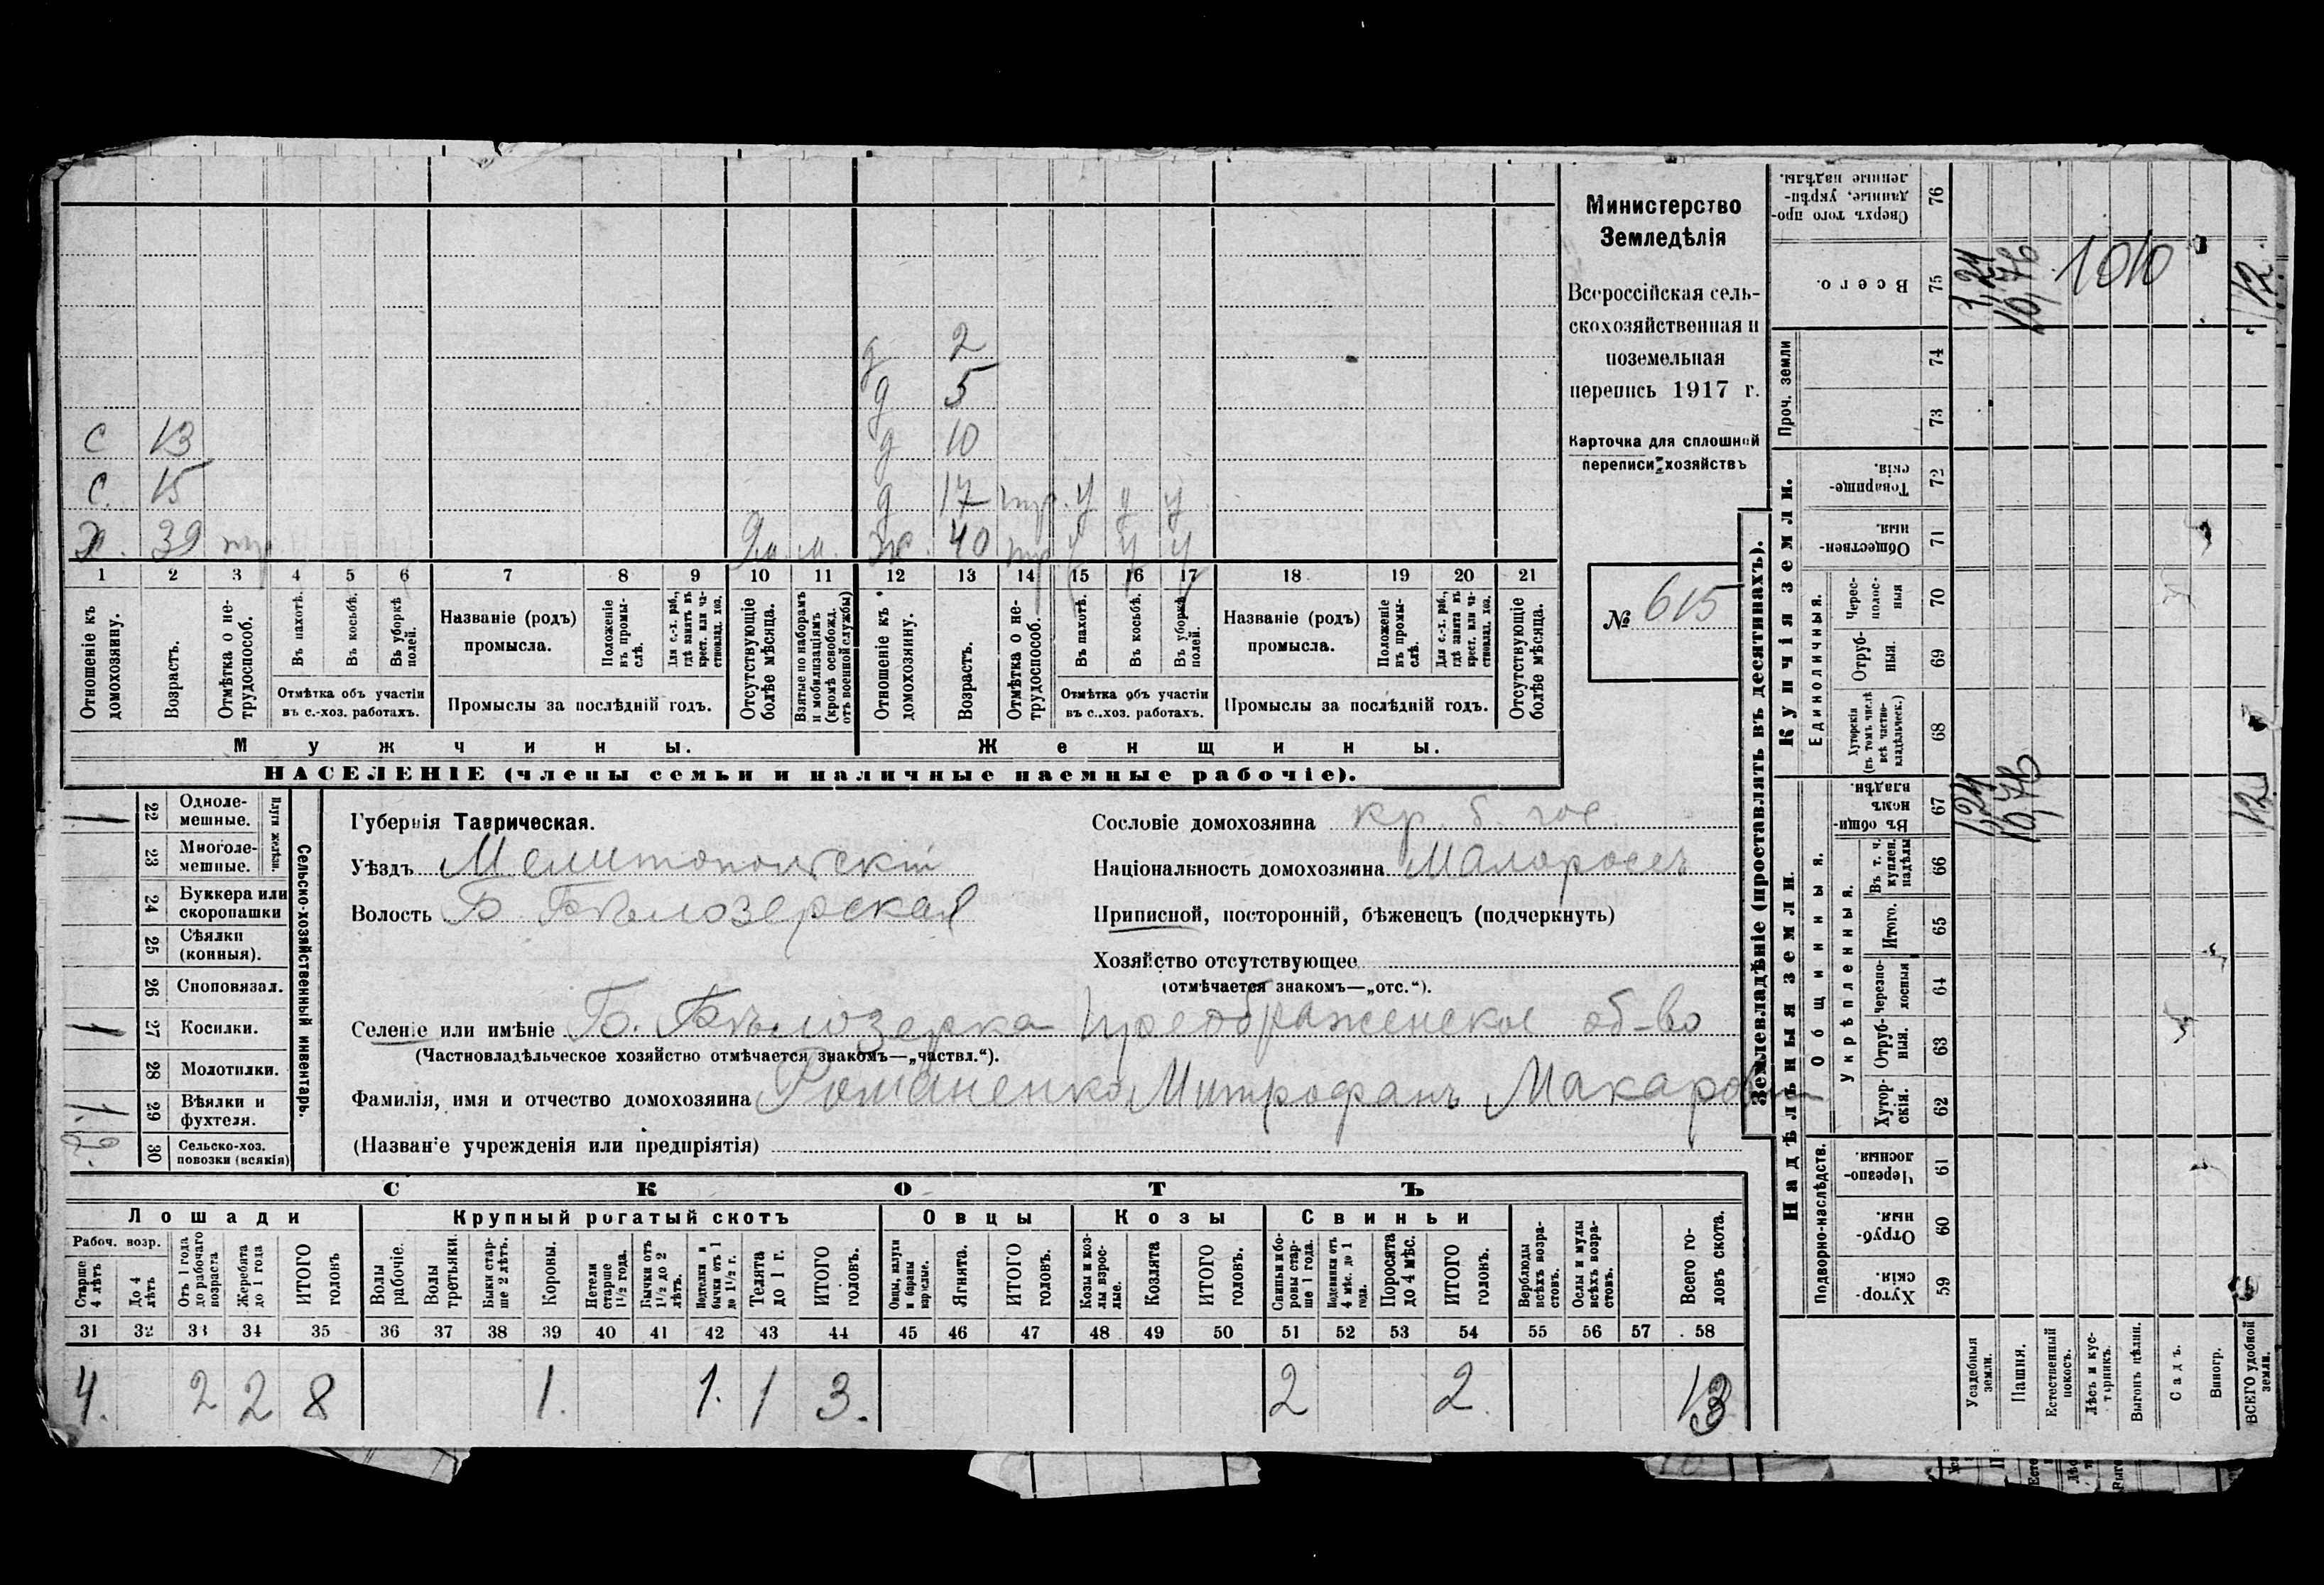 Министерство
Земледѣлія
Всероссійская сель-
скохозяйственная и
поземельная
перепись 1917 г.
Карточка для сплошной
переписи хозяйствъ
№ 615
д 2
д 5
С 13 д 10
С. 15 д 17 тр. у у у
Х. 39 тр 9 м. м. ж. 40 тр у у у
1 2 3 4 5 6 7 8 9 10 11 12 13 14 15 16 17 18 19 20 21
Отношеніе къ домохозяину.
Возрастъ.
Отмѣтка о не-трудоспособ.
Въ пахотѣ.
Въ косьбѣ.
Въ уборкѣ полей.
Отмѣтка объ участіи
въ с.-хоз. работахъ.
Названіе (родъ)
промысла.
Положеніе въ промы-слѣ.
Для с.-х. раб., гдѣ занятъ въ крест. или ча-стновлад. хоз.
Промыслы за послѣдній годъ.
Отсутствующіе болѣе мѣсяца.
Взятые по наборамъ и мобилизаціямъ (кромѣ освобожд. отъ военной службы)
Отношеніе къ домохозяину.
Возрастъ.
Отмѣтка о не-трудоспособ.
Въ пахотѣ.
Въ косьбѣ.
Въ уборкѣ полей.
Отмѣтка объ участіи
въ с..хоз. работахъ.
Названіе (родъ)
промысла.
Положеніе въ промы-слѣ.
Для с.-х. раб., гдѣ занята въ крест. или ча-стновлад. хоз.
Промыслы за послѣдній годъ.
Отсутствующіе болѣе мѣсяца.
Мужчины.
Женщины.
НАСЕЛЕНІЕ (члены семьи и наличные наемные рабочіе).
Сельско-хозяйственный инвентарь.
Плуги желѣзн.
1 22 Одноле-
мешные.
23 Многоле-
мешные.
24 Буккера или
скоропашки
25 Сѣялки
(конныя).
26 Сноповязал.
1 27 Косилки.
28 Молотилки.
1. 29 Вѣялки и
фухтеля.
2. 30 Сельско-хоз.
повозки (всякія)
Губернія Таврическая.
Уѣздъ Мелитопольскій
Волость Б. Бѣлозерская
Сословіе домохозяина кр. б. гос.
Національность домохозяина Малороссъ
Приписной, посторонній, бѣженецъ (подчеркнуть)
Хозяйство отсутствующее
(отмѣчается знакомъ—„отс.“).
Селеніе или имѣніе Б. Бѣлозерка Преображенское об-во
(Частновладѣльческое хозяйство отмѣчается знакомъ—„частвл.“).
Фамилія, имя и отчество домохозяина Романенко Митрофанъ Макаров
(Названіе учрежденія или предпріятія)
СКОТЪ
Лошади
Рабоч. возр.
Старше 4 лѣтъ
До 4 лѣтъ
Отъ 1 года до рабочаго возраста
Жеребята до 1 года
ИТОГО головъ
Крупный рогатый скотъ
Волы рабочіе.
Волы третьяки.
Быки стар-ше 2 лѣтъ.
Коровы.
Нетели старше 1½ года.
Бычки отъ 1½ до 2 лѣтъ.
Подтелки и бычки отъ 1 до 1½ г.
Телята до 1 г.
ИТОГО головъ.
Овцы
Овцы, валухи и бараны взрослые.
Ягнята.
ИТОГО головъ.
Козы
Козы и коз-лы взрос-лые.
Козлята
ИТОГО головъ.
Свиньи
Свиньи и бо-ровы стар-ше 1 года.
Подсвинки отъ 4 мѣс. до 1 года.
Поросята до 4 мѣс.
ИТОГО головъ.
Верблюды всѣхъ возра-стовъ.
Ослы и мулы всѣхъ возра-стовъ.
Всего го-ловъ скота.
31 32 33 34 35 36 37 38 39 40 41 42 43 44 45 46 47 48 49 50 51 52 53 54 55 56 57 58
4. 2 2 8 1. 1. 1 3. 2 2 13
Землевладѣніе (проставлять въ десятинахъ).
Купчія земли.
Надѣльныя земли.
Сверхъ того про-данные, укрѣп-ленные надѣлы. 76
Всего. 75 10,76 12
Проч. земли 74 73
Товарище-скія. 72
Обществен-ныя. 71
Единоличныя.
Черес-полос-ныя 70
Отруб-ныя. 69
Хуторскія (въ томъ числѣ всѣ частно-владѣльческ.) 68
Общинныя.
Въ общи-номъ владѣн. 67 1,24 10,76 12
Въ т. ч. куплен. надѣлы 66
Укрѣпленныя.
Итого. 65
Черезпо-лосныя 64
Отруб-ныя. 63
Хутор-скія. 62
Подворно-наслѣдств.
Черезпо-лосныя. 61
Отруб-ныя. 60
Хутор-скія. 59
Усадебныя земли.
Пашня.
Естественный покосъ.
Лѣсъ и кус-тарникъ.
Выгонъ цѣлин.
Садъ.
Виногр.
ВСЕГО удобной земли.